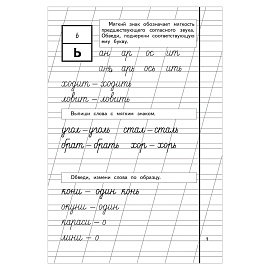 Мягкий знак обозначает мягкость
предшествующего согласного звука.
Обведи, подчеркни соответствующую
ему букву.
6
Ь
ан ар ос ит
ань арь ось ить
ходит – ходить
ловит – ловить
Выпиши слова с мягким знаком.
угол – уголь сталь – сталь
брат – брать хор – хорь
Обведи, измени слова по образцу.
кони – один конь
окуни – один
караси – о
лини – о